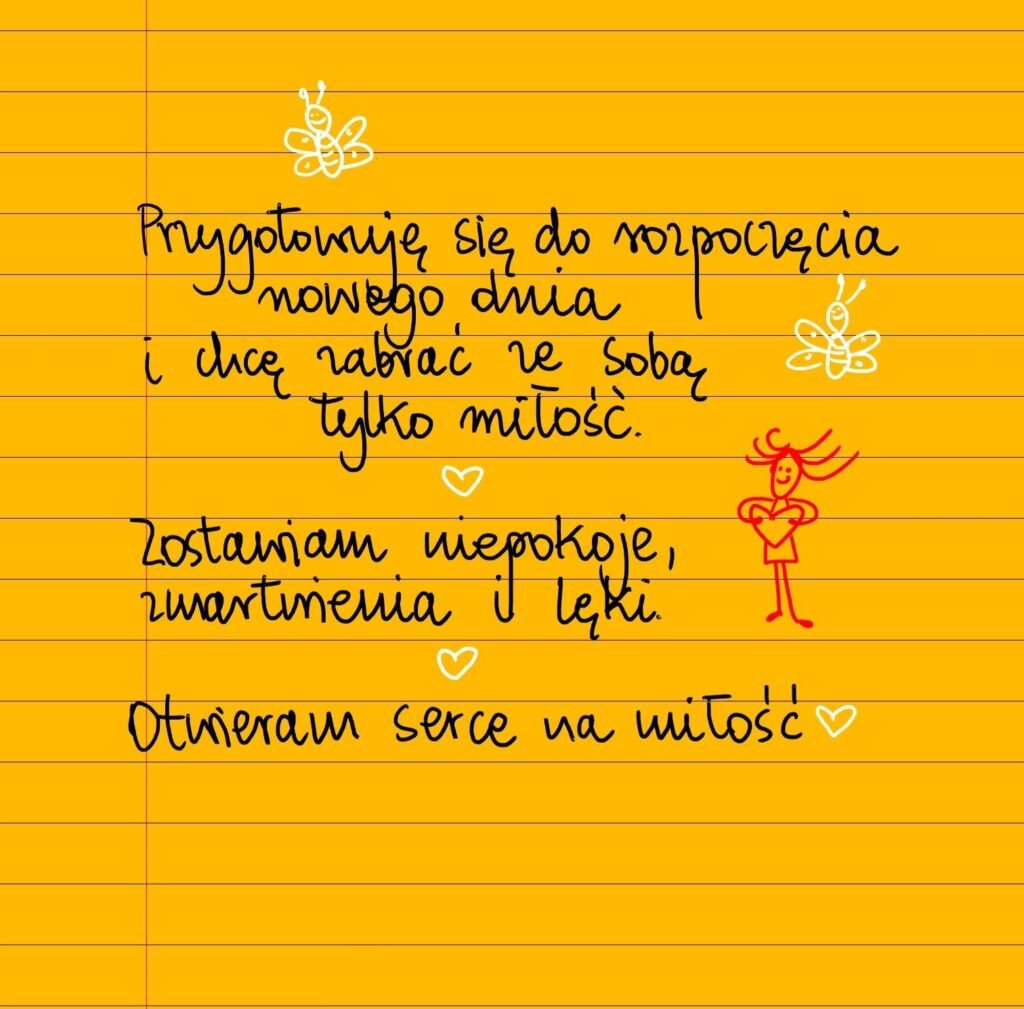 Przygotowuję się do rozpoczęcia
nowego dnia
i chcę zabrać ze sobą
tylko miłość.
Zostawiam niepokoje,
zmartwienia i lęki.
Otwieram serce na miłość